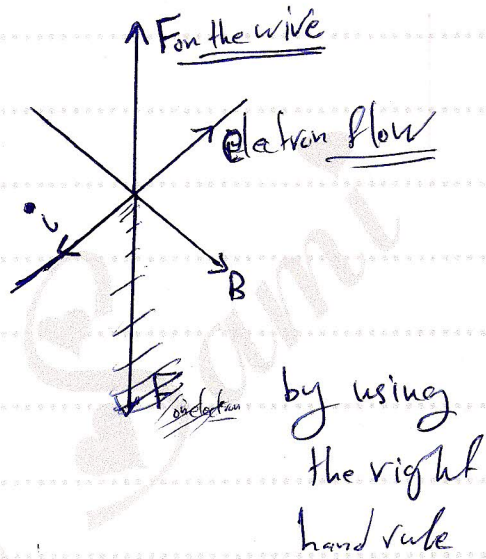 F on the wire
electron flow
i
B
F on electron
by using
the right
hand rule
Sami